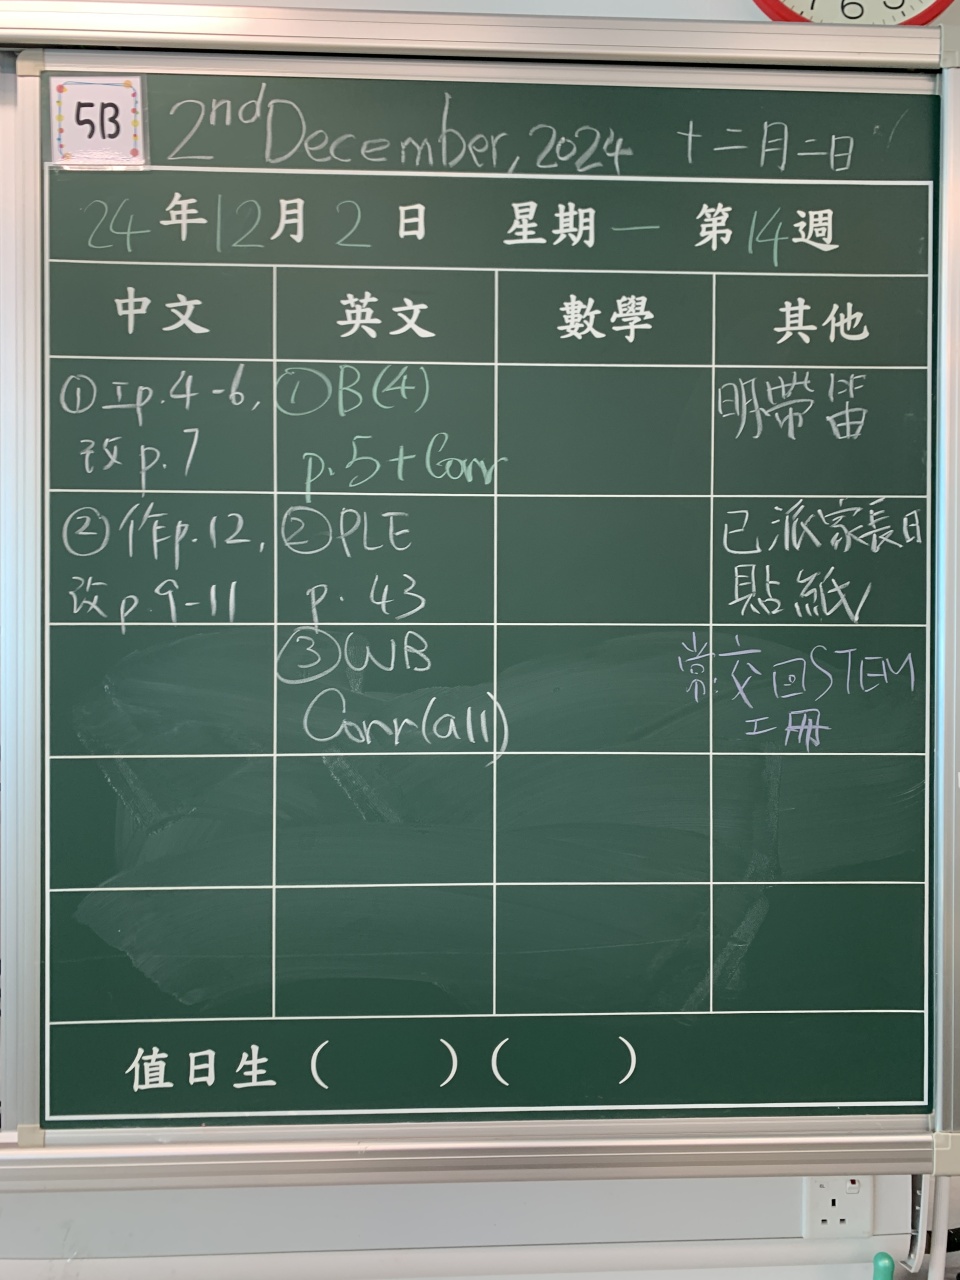 5B
2nd December, 2024 十二月二日
24年12月2日 星期一 第14週
中文 英文 數學 其他
①工p.4-6,
改p.7
①B(4)
p.5+Corr
明帶笛
②作p.12,
改p.9-11
②PLE
p.43
已派家長日
貼紙
③WB
Corr(all)
常:交回STEM
工冊
值日生( )( )